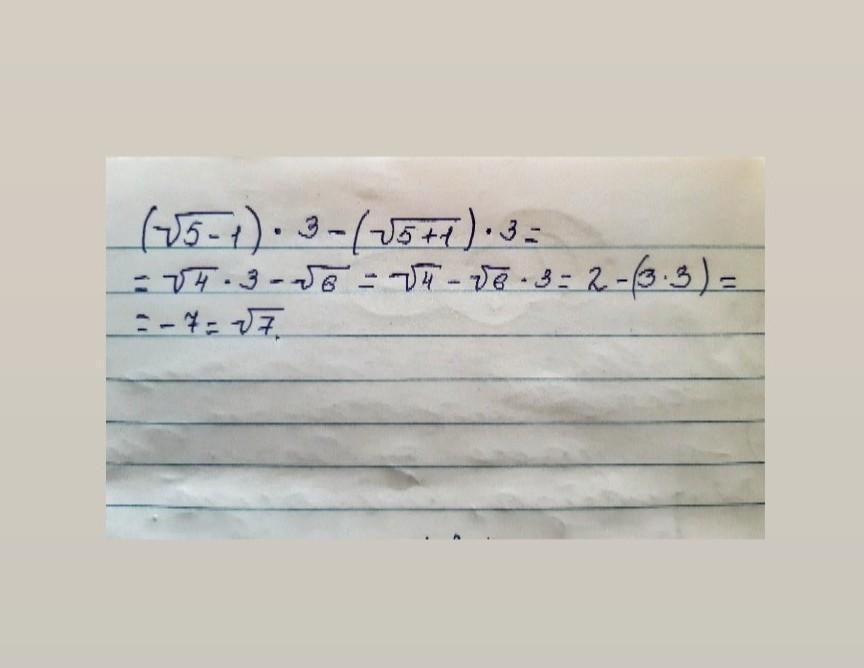 (√5-1) · 3 - (√5+1) · 3 =
= √4 · 3 - √6 = √4 - √6 · 3 = 2 - (3·3) =
= - 7 = √7.